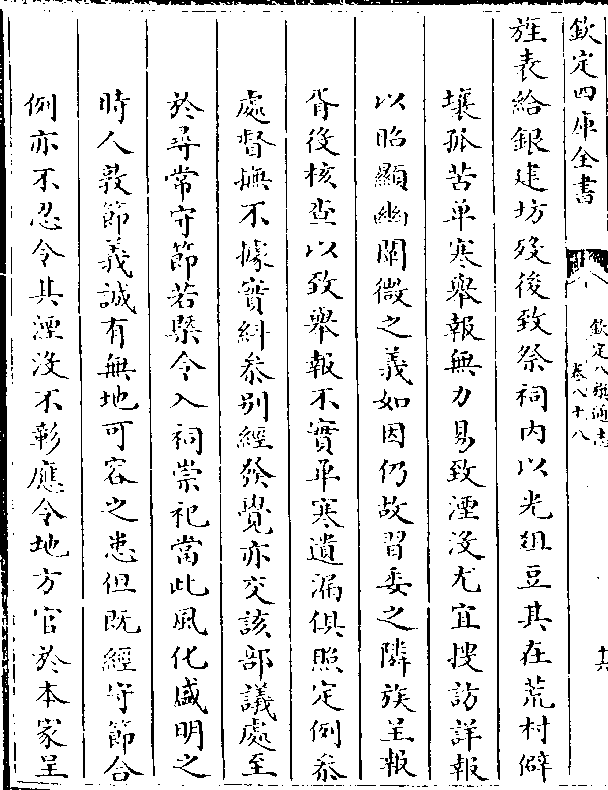 欽定四庫全書
欽定八旗通志
卷八十八
十六
旌表給銀建坊歿後致祭祠内以光俎豆其在荒村僻
壤孤苦单寒舉報無力易致湮没尤宜搜訪詳報
以昭顯幽闡微之義如因仍故習委之隣族呈報
胥役核查以致舉報不實单寒遺漏俱照定例叅
處督撫不據實糾叅别經發覺亦交該部議處至
於尋常守節若槩令入祠崇祀當此風化盛明之
時人敦節義誠有無地可容之患但既經守節合
例亦不忍令其湮没不彰應令地方官於本家呈